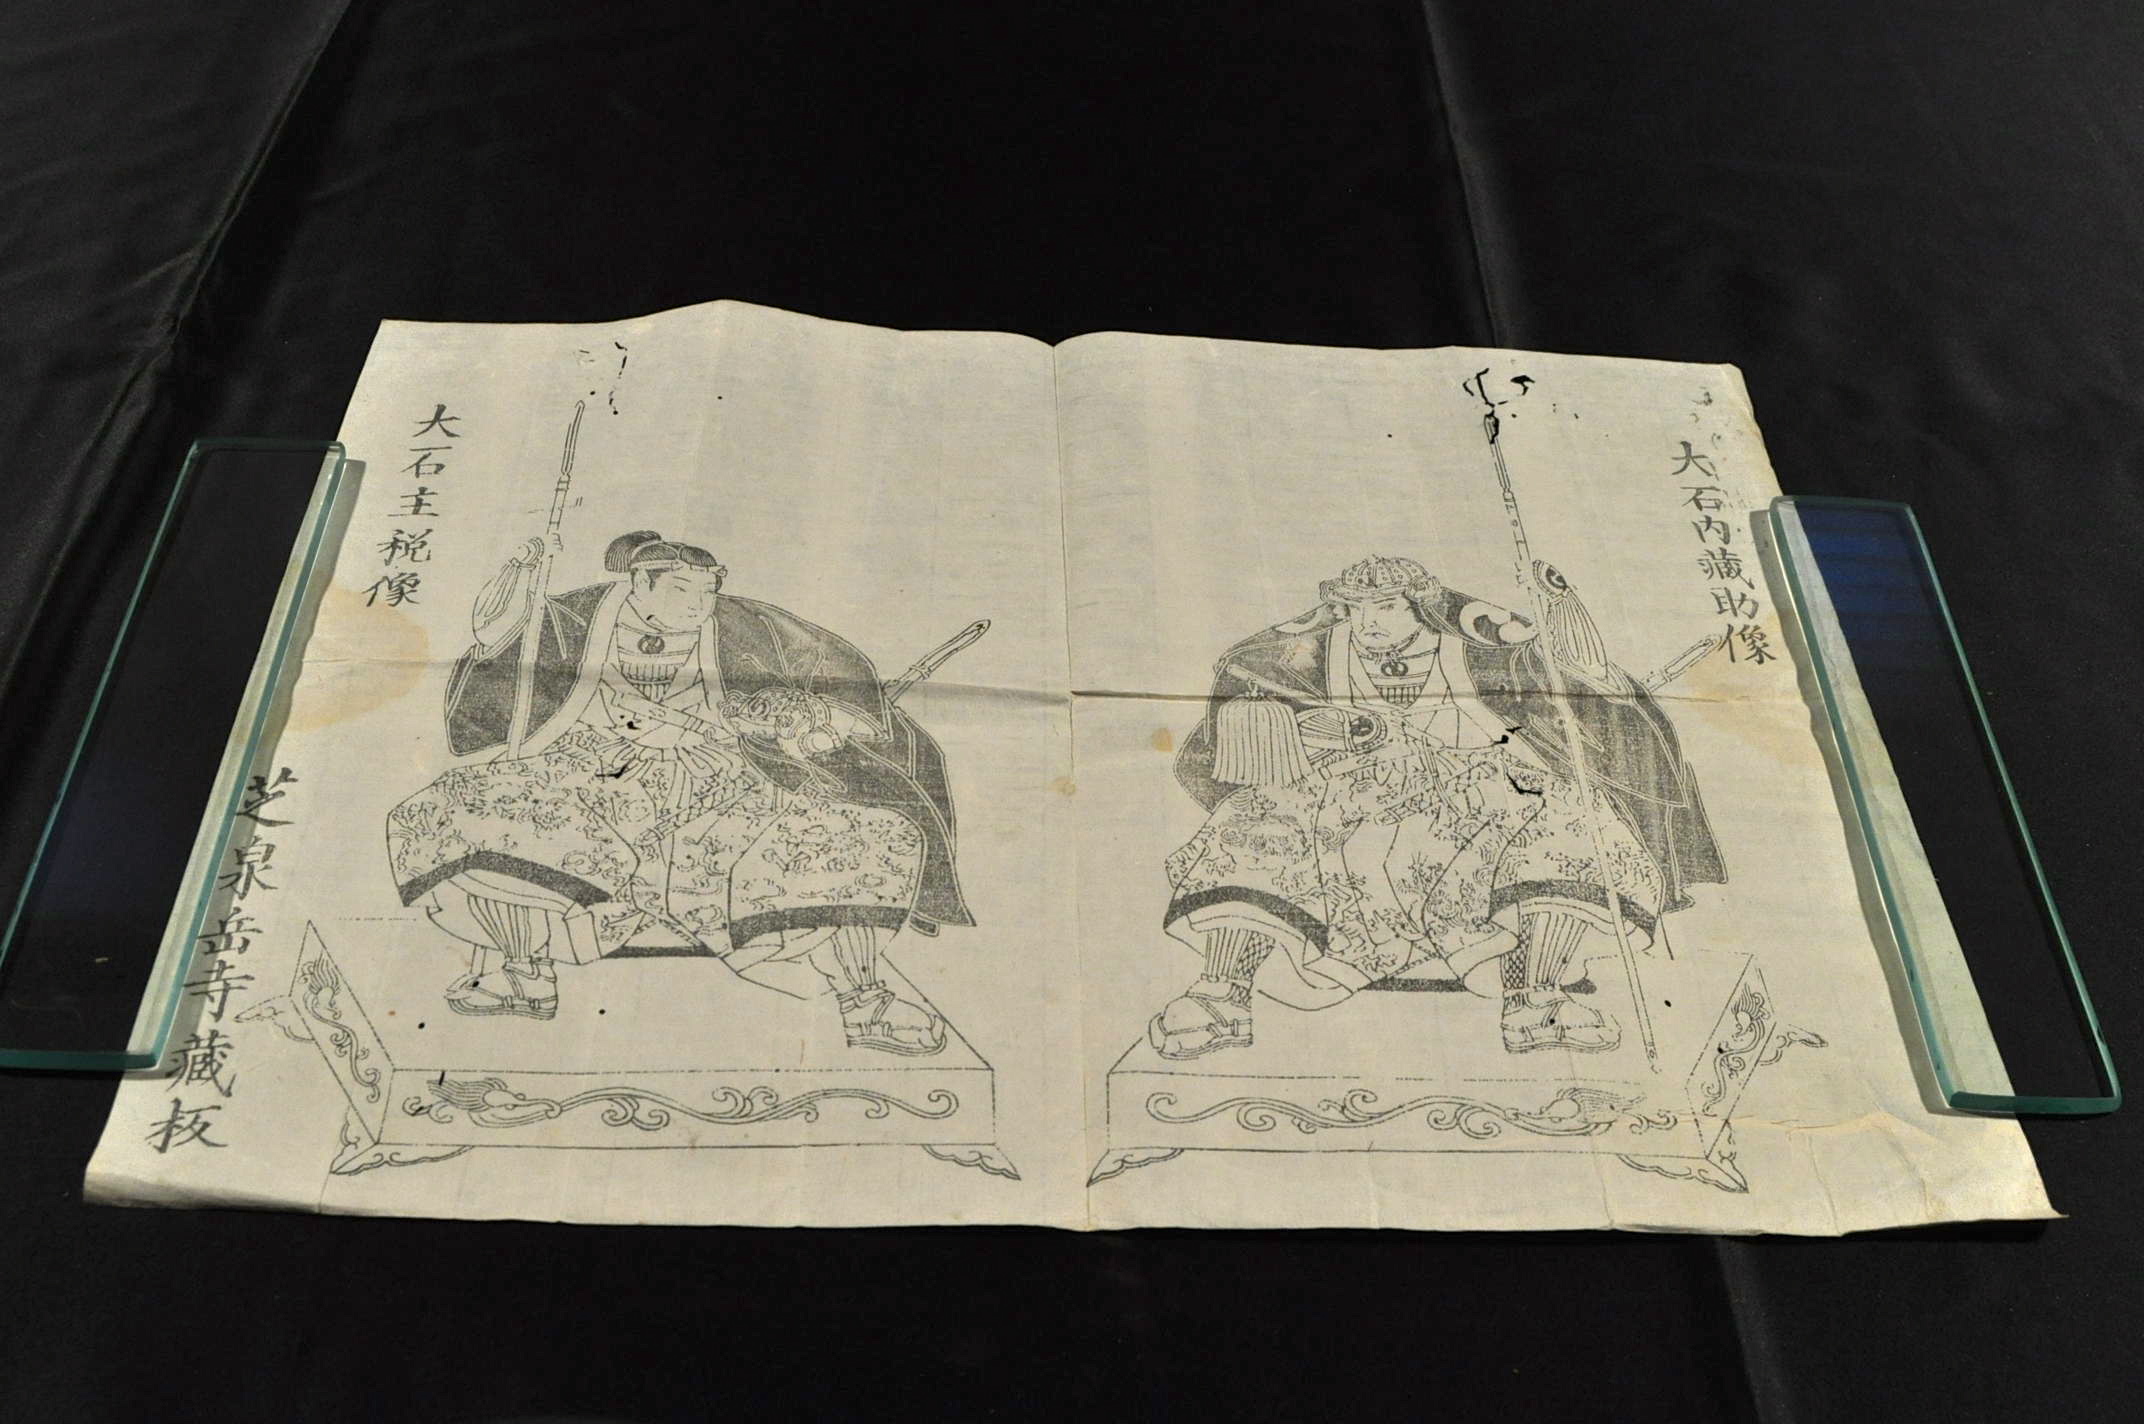 大石内藏助像
大石主税像
芝泉岳寺藏板